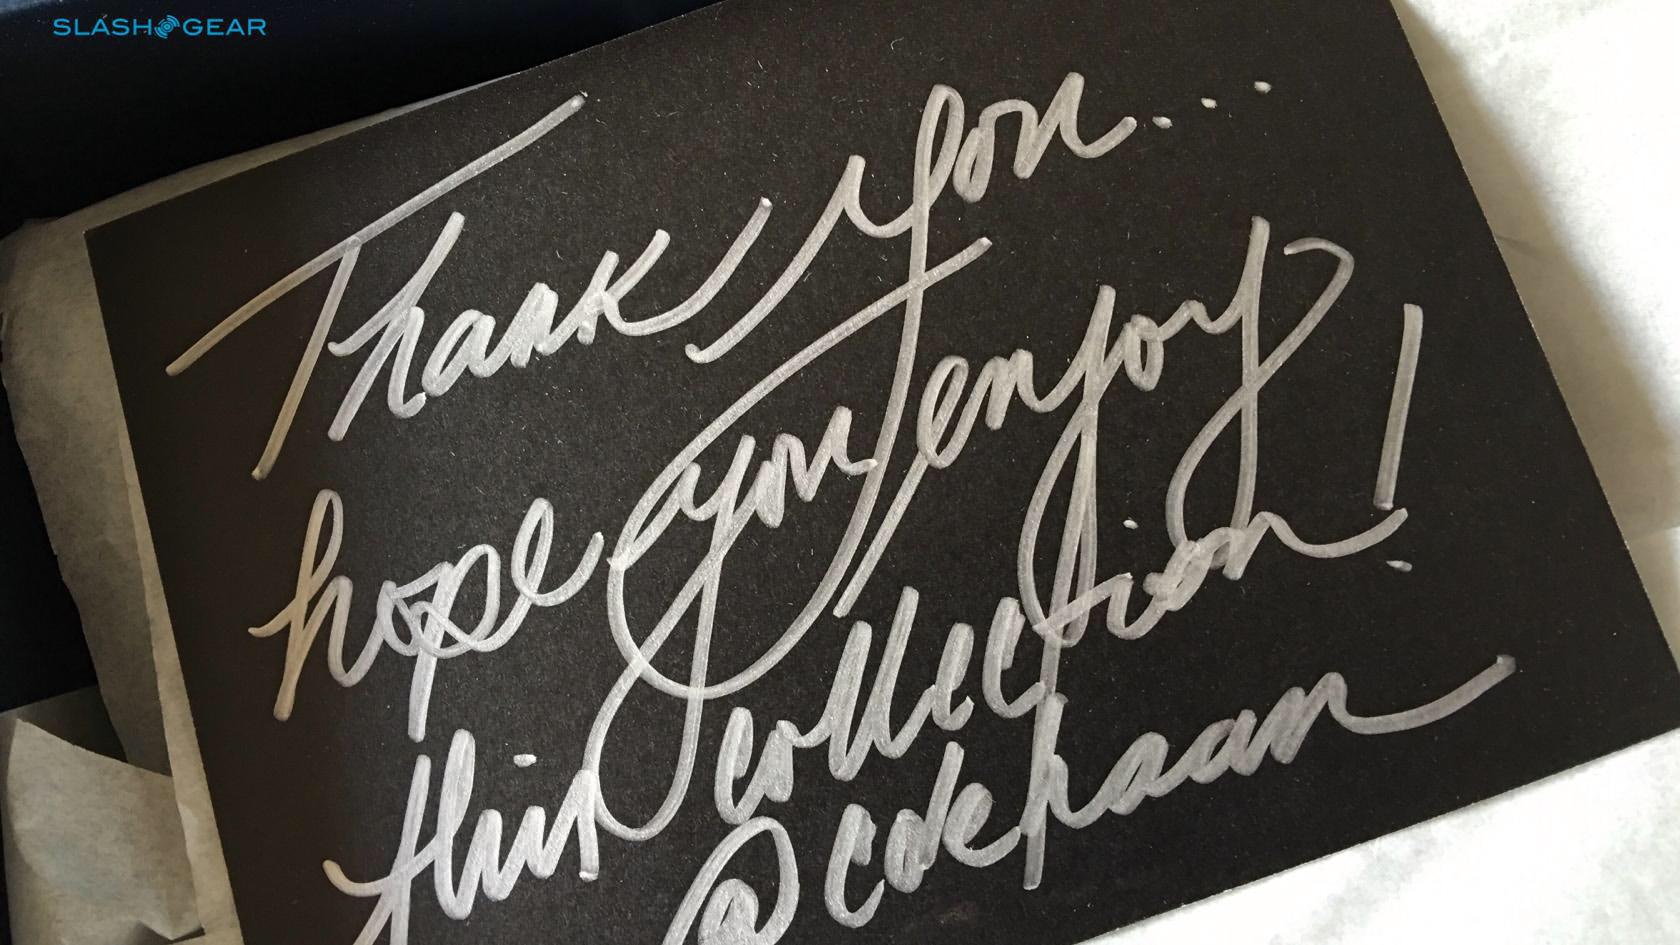 SLASHGEAR
Thank you...
hope you enjoy
this collection!
@cdehaan